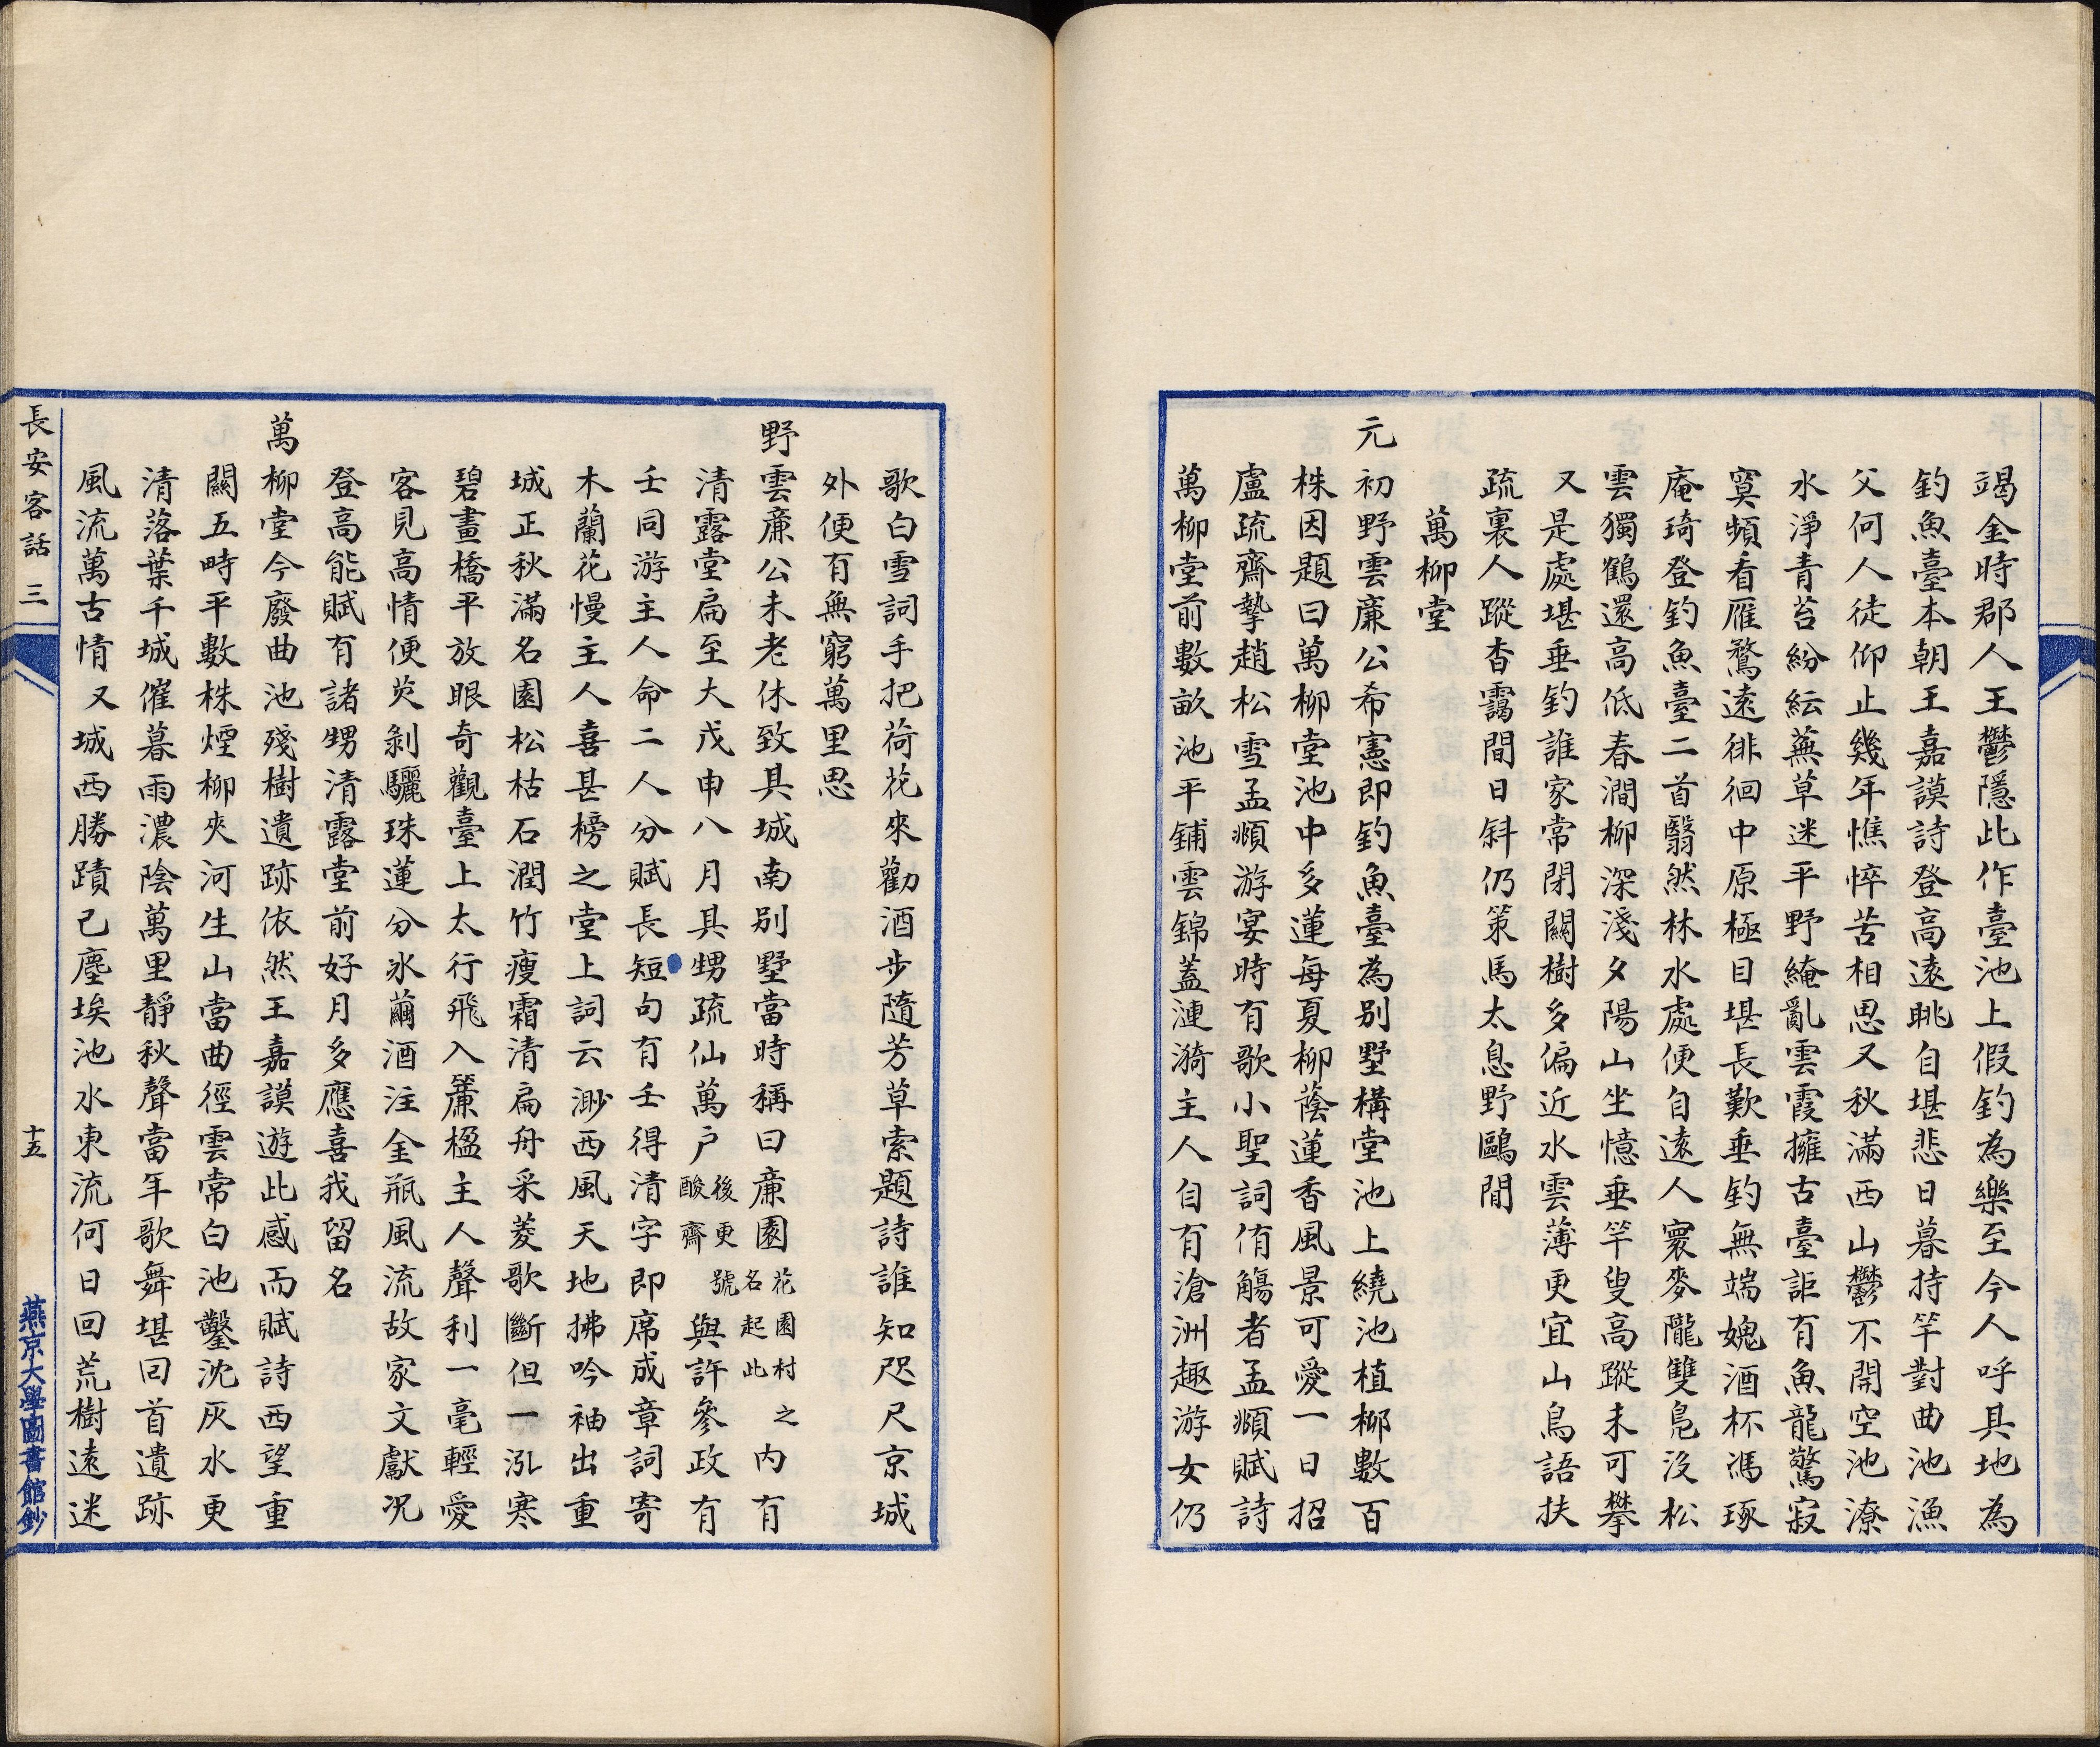 竭金時郡人王鬱隱此作臺池上假釣為樂至今人呼其地為
釣魚臺本朝王嘉謨詩登高遠眺自堪悲日暮持竿對曲池漁
父何人徒仰止幾年憔悴苦相思又秋滿西山鬱不開空池潦
水淨青苔紛紜蕪草迷平野綣亂雲霞擁古臺詎有魚龍驚寂
寞頻看雁鶩遠徘徊中原極目堪長歎垂釣無端媿酒杯馮琢
庵琦登釣魚臺二首翳然林水處便自遠人寰麥隴雙鳧沒松
雲獨鶴還高低春澗柳深淺夕陽山坐憶垂竿叟高蹤未可攀
又是處堪垂釣誰家常閉關樹多偏近水雲薄更宜山鳥語扶
疏裏人蹤杳靄間日斜仍策馬太息野鷗閒
萬柳堂
元初野雲廉公希憲即釣魚臺為別墅構堂池上繞池植柳數百
株因題曰萬柳堂池中多蓮每夏柳蔭蓮香風景可愛一日招
盧疏齋摯趙松雪孟頫游宴時有歌小聖詞侑觴者孟頫賦詩
萬柳堂前數畝池平鋪雲錦蓋漣漪主人自有滄洲趣游女仍
歌白雪詞手把荷花來勸酒步隨芳草索題詩誰知咫尺京城
外便有無窮萬里思
野雲廉公未老休致其城南別墅當時稱曰廉園花園村之名起此內有
清露堂扁至大戊申八月其甥疏仙萬戶後更號酸齋與許參政有
壬同游主人命二人分賦長短句有壬得清字即席成章詞寄
木蘭花慢主人喜甚榜之堂上詞云渺西風天地拂吟袖出重
城正秋滿名園松枯石潤竹瘦霜清扁舟采菱歌斷但一泓寒
碧畫橋平放眼奇觀臺上太行飛入簾楹主人聲利一毫輕愛
客見高情便芡剝驪珠蓮分冰繭酒注金瓶風流故家文獻況
登高能賦有諸甥清露堂前好月多應喜我留名
萬柳堂今廢曲池殘樹遺跡依然王嘉謨遊此感而賦詩西望重
關五畤平數株煙柳夾河生山當曲徑雲常白池鑿沈灰水更
清落葉千城催暮雨濃陰萬里靜秋聲當年歌舞堪回首遺跡
風流萬古情又城西勝蹟已塵埃池水東流何日回荒樹遠迷
長安客話 三
十五
燕京大學圖書館鈔